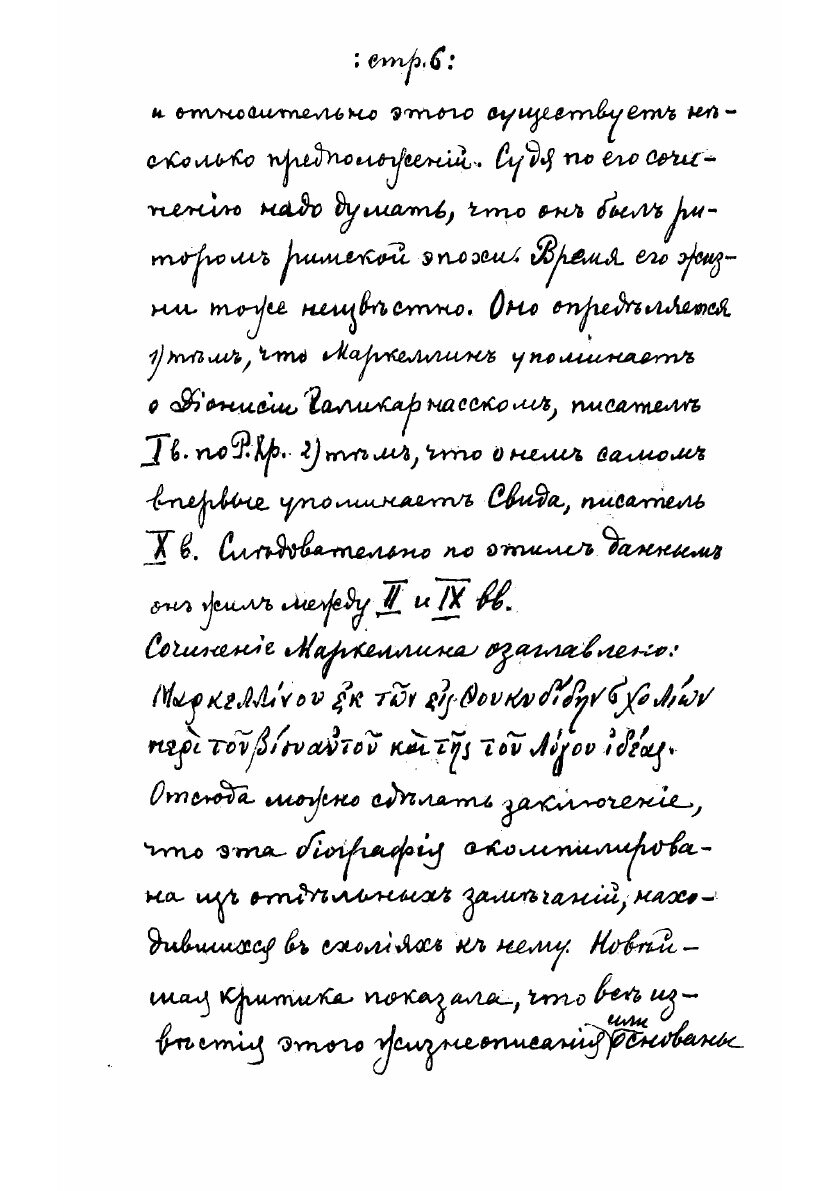 : стр. 6 :
и относительно этого существуетъ нѣ-
сколько предположеній. Судя по его сочи-
ненію надо думать, что онъ былъ ри-
торомъ римской эпохи. Время его жиз-
ни тоже неизвѣстно. Оно опредѣляется
1) тѣмъ, что Маркеллинъ упоминаетъ
о Діонисіи Галикарнасскомъ, писателѣ
I в. по Р. Хр. 2) тѣмъ, что о немъ самомъ
впервые упоминаетъ Свида, писатель
X в. Слѣдовательно по этимъ даннымъ
онъ жилъ между II и IX вв.
Сочиненіе Маркеллина озаглавлено:
Μαρκελλίνου ἐκ τῶν εἰς Θουκυδίδην σχολίων
περὶ τοῦ βίου αὐτοῦ καὶ τῆς τοῦ λόγου ἰδέας.
Отсюда можно сдѣлать заключеніе,
что эта біографія скомпилирова-
на изъ отдѣльныхъ замѣчаній, нахо-
дившихся въ схоліяхъ къ нему. Новѣй-
шая критика показала, что всѣ из-
вѣстія этого жизнеописанія или основаны